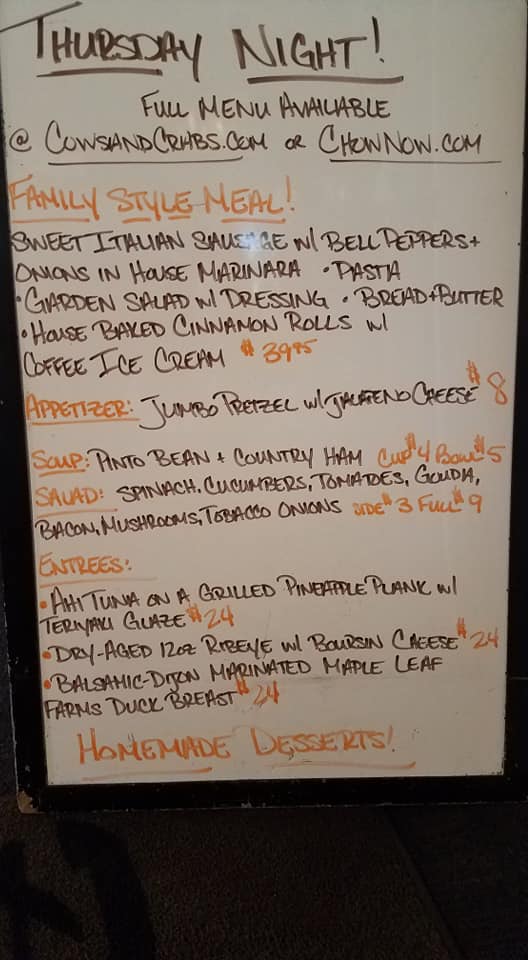 THURSDAY NIGHT!
FULL MENU AVAILABLE
@ COWSANDCRABS.COM OR CHOWNOW.COM
FAMILY STYLE MEAL!
SWEET ITALIAN SAUSAGE W/ BELL PEPPERS +
ONIONS IN HOUSE MARINARA • PASTA
• GARDEN SALAD W/ DRESSING • BREAD + BUTTER
• HOUSE BAKED CINNAMON ROLLS W/
COFFEE ICE CREAM $39.95
APPETIZER: JUMBO PRETZEL W/ JALAPENO CHEESE $8
SOUP: PINTO BEAN + COUNTRY HAM CUP $4 BOWL $5
SALAD: SPINACH, CUCUMBERS, TOMATOES, GOUDA,
BACON, MUSHROOMS, TOBACCO ONIONS SIDE $3 FULL $9
ENTREES:
• AHI TUNA ON A GRILLED PINEAPPLE PLANK W/
TERIYAKI GLAZE $24
• DRY-AGED 12OZ RIBEYE W/ BOURSIN CHEESE $24
• BALSAMIC-DIJON MARINATED MAPLE LEAF
FARMS DUCK BREAST $24
HOMEMADE DESSERTS!